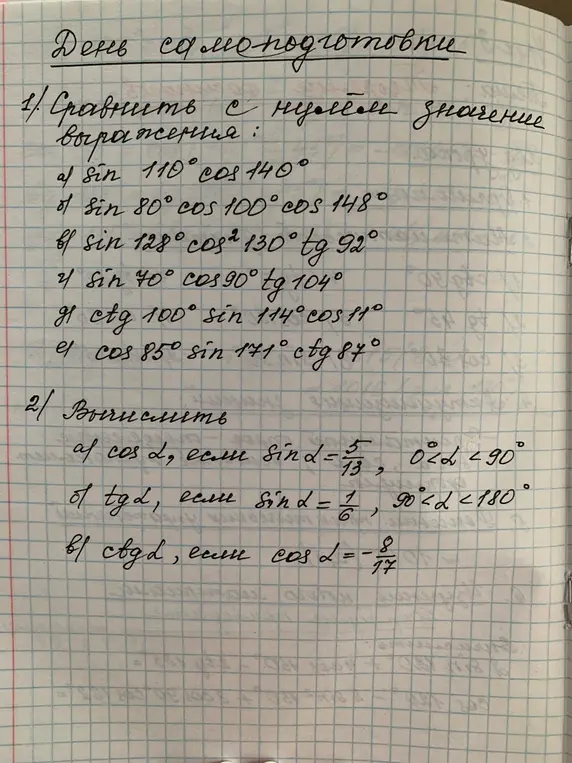 День самоподготовки
1) Сравнить с нулём значение
выражения:
а) sin 110° cos 140°
б) sin 80° cos 100° cos 148°
в) sin 128° cos² 130° tg 92°
г) sin 70° cos 90° tg 104°
д) ctg 100° sin 114° cos 11°
е) cos 85° sin 171° ctg 87°
2) Вычислить
а) cos α, если sin α = 5/13, 0° < α < 90°
б) tg α, если sin α = 1/6, 90° < α < 180°
в) ctg α, если cos α = -8/17